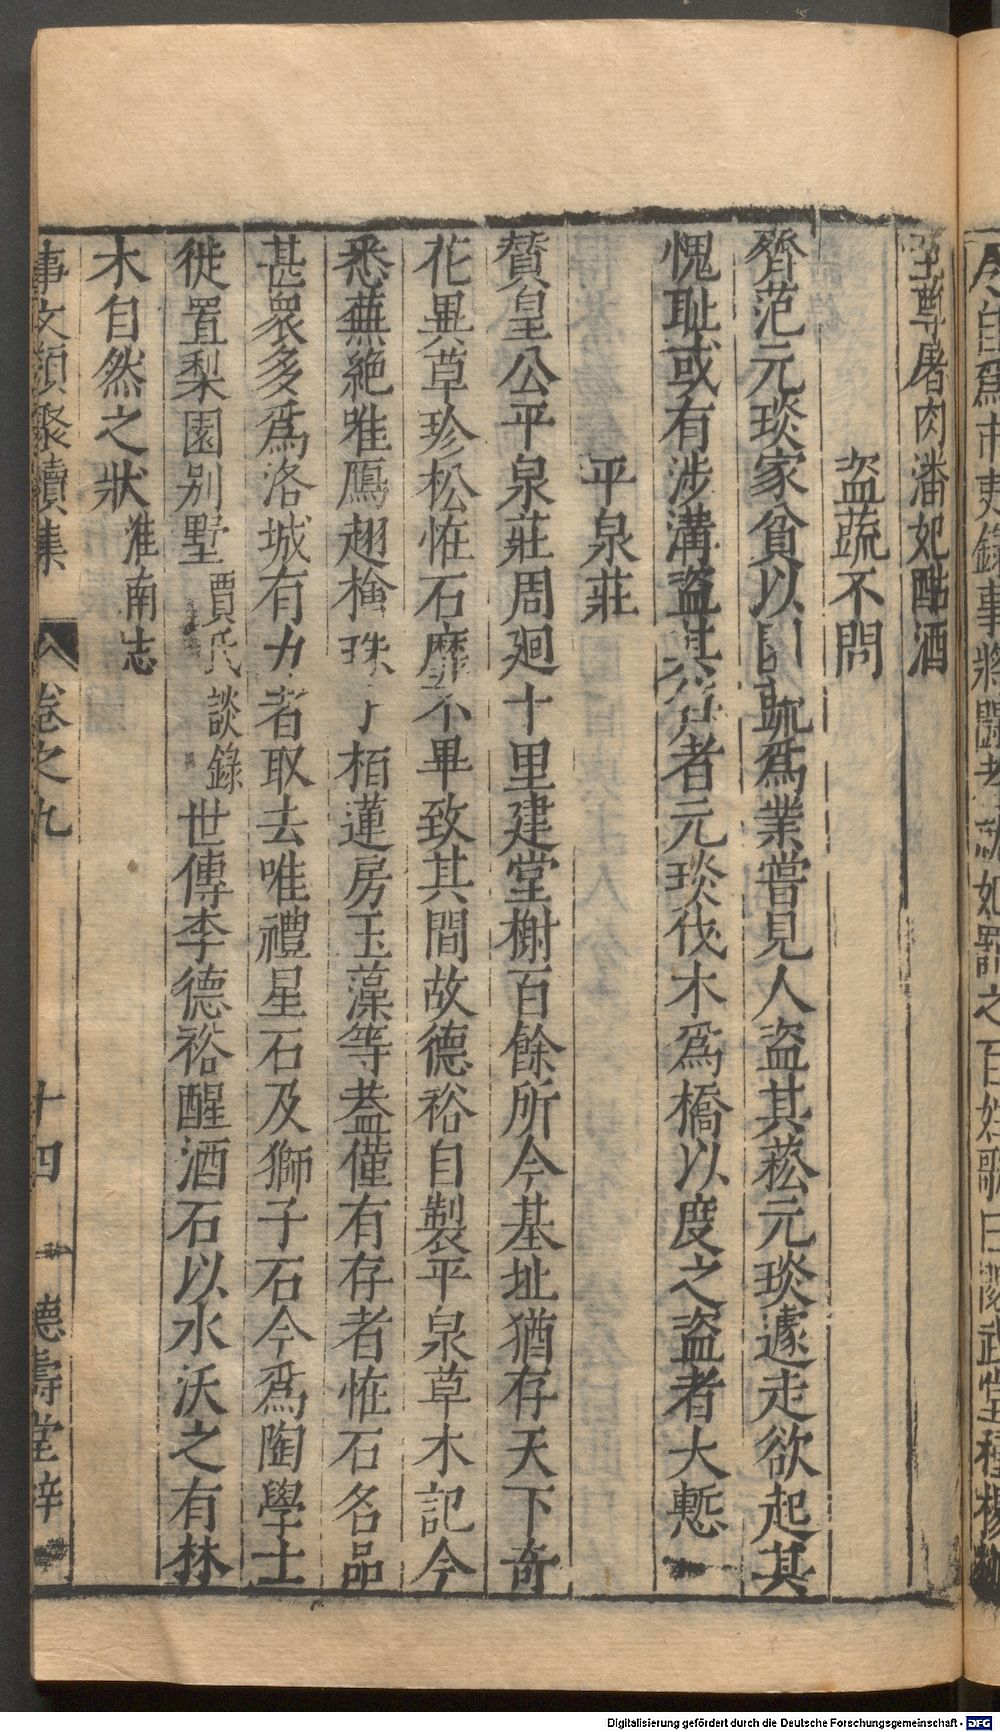 自爲市吏錄事將鬪者
妃罰之百姓歌曰閲武堂種楊
至尊屠肉潘妃酤酒
盜蔬不問
齊范元琰家貧以園蔬爲業嘗見人盜其菘元琰遽走欲起其
愧耻或有涉溝盜其者元琰伐木爲橋以度之盜者大慙
平泉莊
贊皇公平泉莊周廻十里建堂榭百餘所今基址猶存天下奇
花異草珍松恠石靡不畢致其間故德裕自製平泉草木記今
悉蕪絶唯鴈翅檜珠子栢蓮房玉藻等葢僅有存者恠石名品
甚衆多爲洛城有力者取去唯禮星石及獅子石今爲陶學士
徙置梨園別墅賈氏談錄世傳李德裕醒酒石以水沃之有林
木自然之狀淮南志
事文類聚續集 卷之九 十四 德壽堂梓
Digitalisierung gefördert durch die Deutsche Forschungsgemeinschaft - DFG